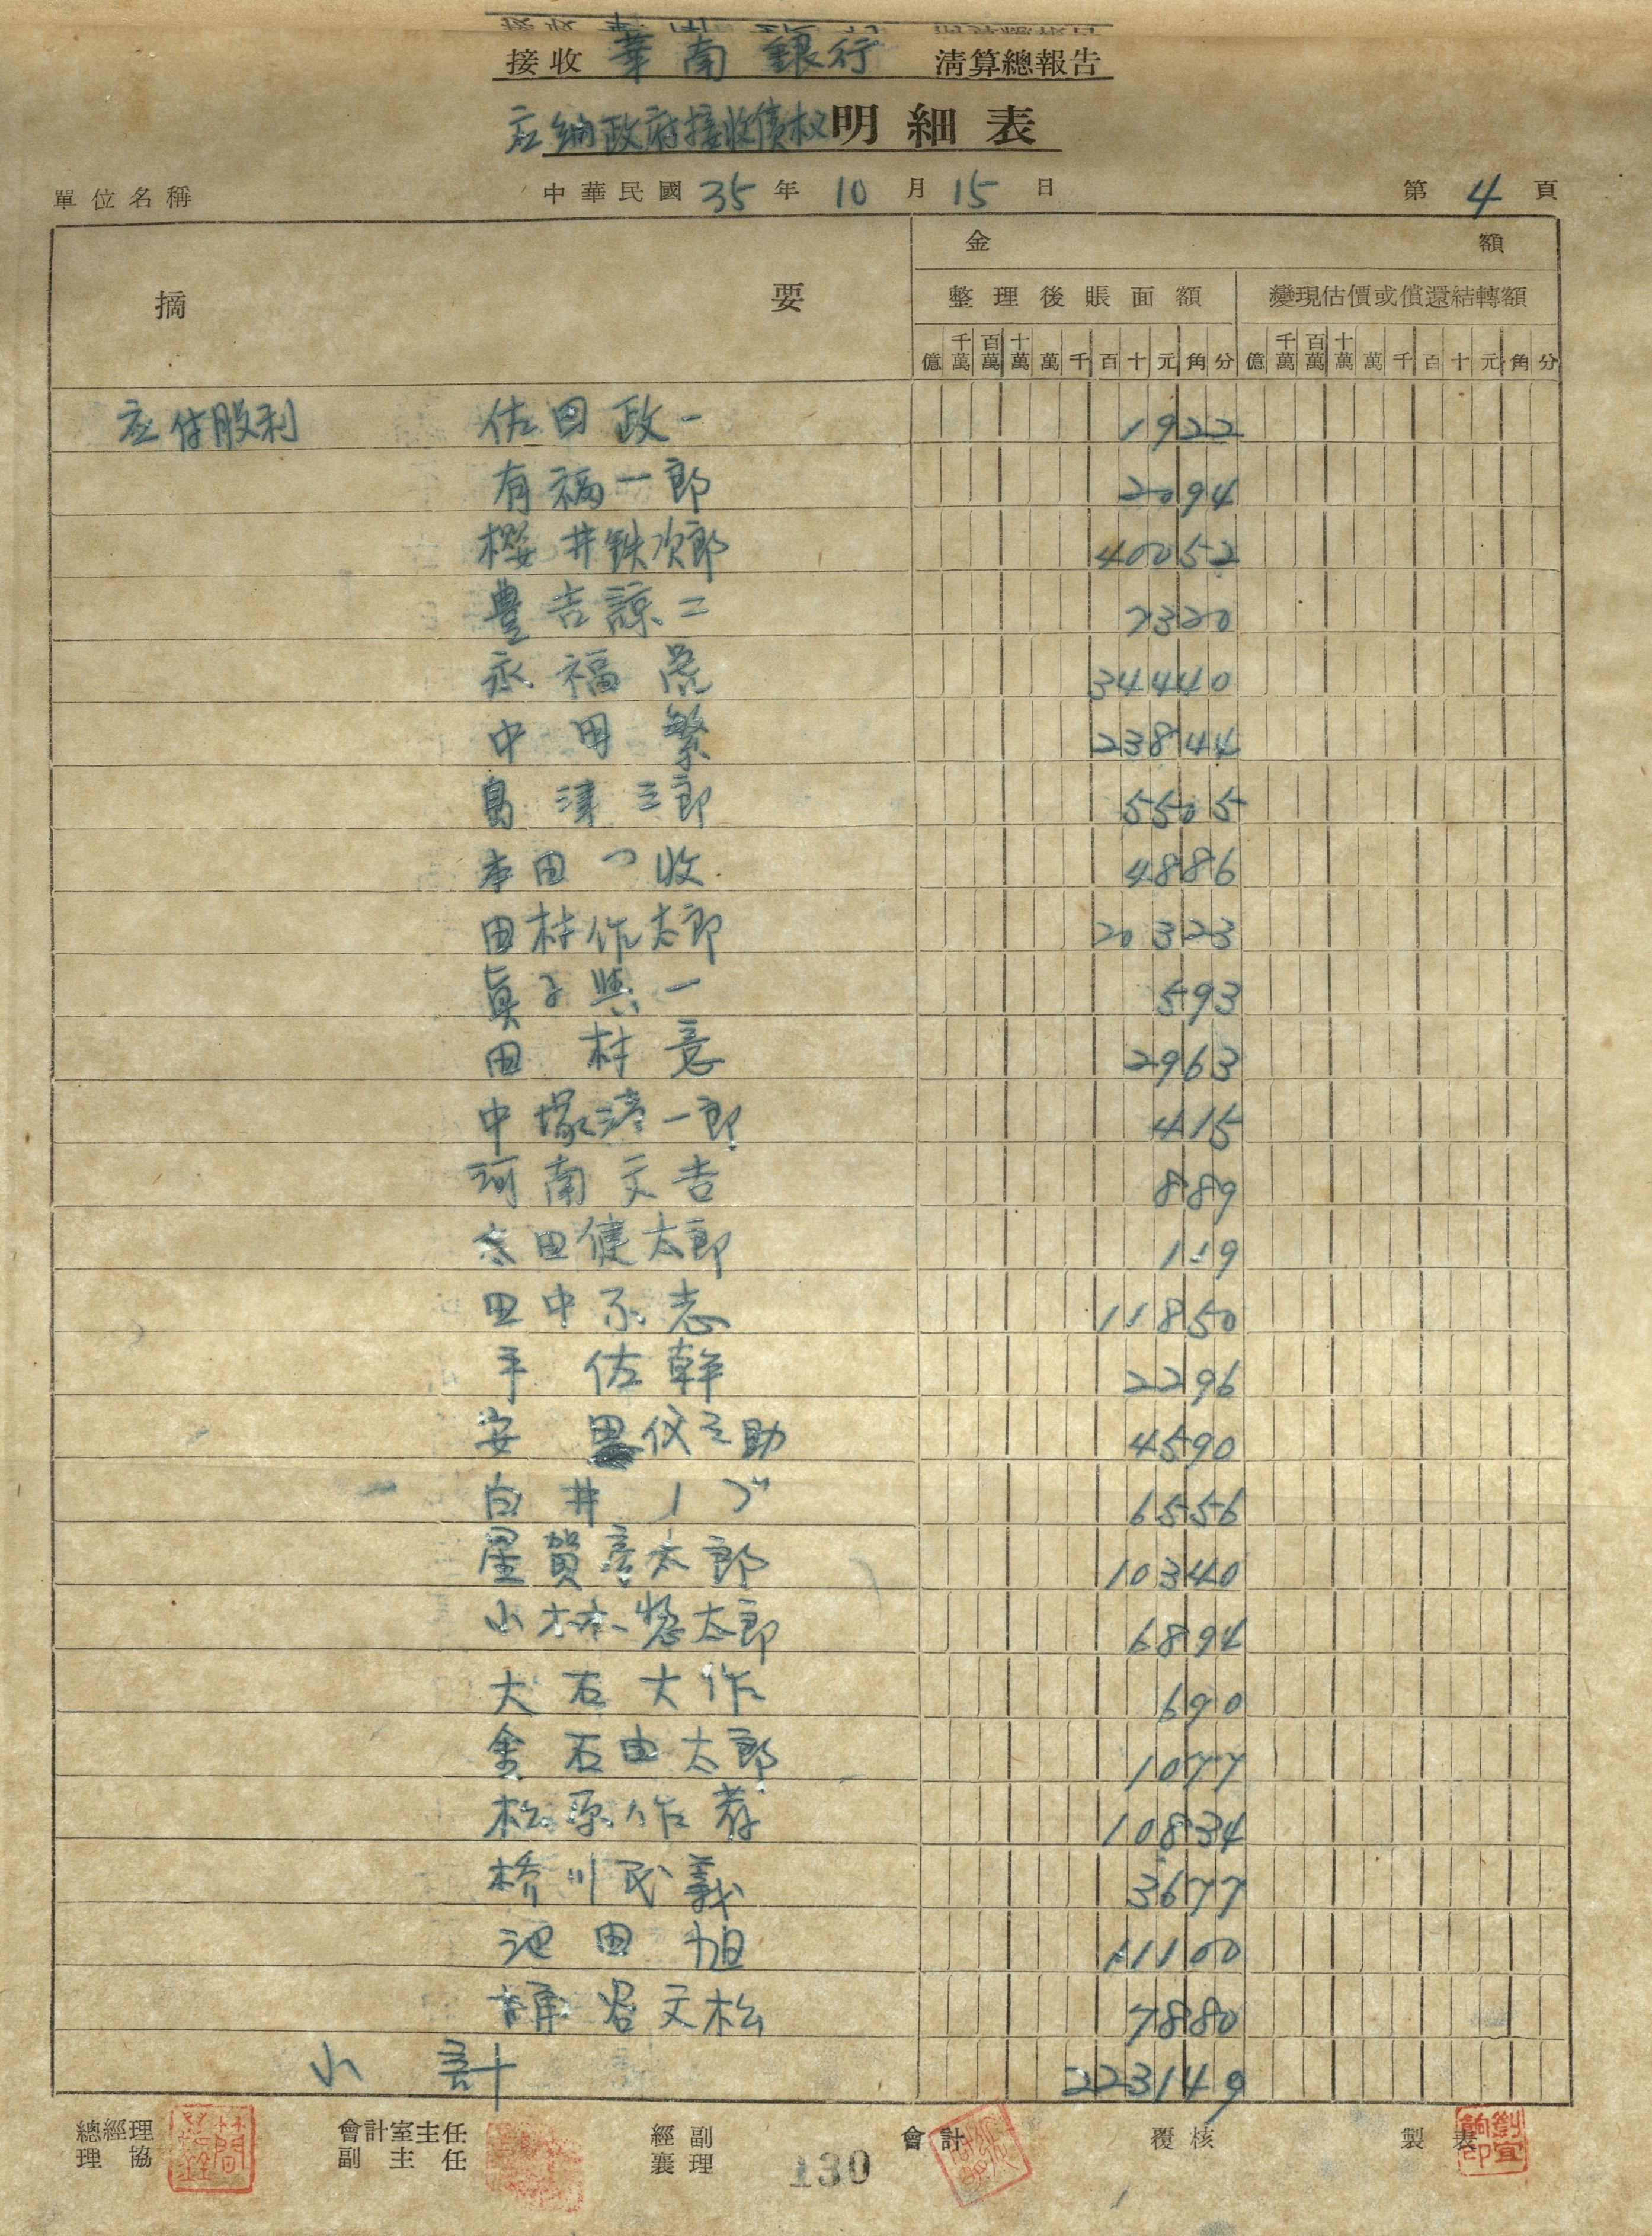 接收 華南銀行 淸算總報告
应納政府接收債权明細表
單位名稱 中華民國35年10月15日 第4頁
摘要 金額
整理後賬面額 變現估價或償還結轉額
億 千萬 百萬 十萬 萬 千 百 十 元 角 分 億 千萬 百萬 十萬 萬 千 百 十 元 角 分
应付股利 佐田政一 1922
有福一郎 2094
櫻井鉄次郎 40052
豊吉諒二 7320
永福 34440
中田繁 23844
島津三郎 5505
本田 收 4886
田村作太郎 20323
眞子與一 593
田村意 2963
中塚淸一郎 415
河南文吉 889
太田健太郎 119
田中不志 11850
手佐幹 2296
安田仪之助 4590
白井ノブ 6556
星賀彦太郎 10340
小林惣太郎 6894
大石大作 690
金石由太郎 1077
松原作 10834
桥川民義 3677
池田旭 11100
谷文松 7880
小計 223149
總經理 會計室主任 經副 會計 覆核 製表
理協 副主任 襄理
130